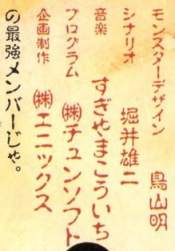 モンスターデザイン
鳥山明
シナリオ
堀井雄二
音楽
すぎやまこういち
プログラム
㈱チュンソフト
企画制作
㈱エニックス
の最強メンバーじゃ。